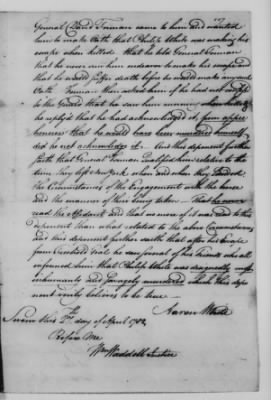 General David Forman came to him and wanted
him to make Oath that Philip White was making his
escape when killed that he told General Forman
that he never saw him endeavor to make his escape and
that he would suffer death before he would make any such
Oath Forman then asked him if he had not confessed
to the Guard that he saw him running when killed
he replyed that he had acknowledged it from appre
hensions that he would have been murdered himself
did he not acknowledge it And this deponent further
saith that General Forman Qualified him relative to the
time they left New York when and where they landed
the Circumstances of the Engagement with the horse
and the manner of their being taken That he never
read the Affidavit and that no more of it was read to this
deponent than what related to the above Circumstances
and this deponent further saith that after his Escape
from Freehold Goal he saw several of his friends who all
informed him that Philip White was dragged
inhumanly and savagely murdered which this depo
nent verily believes to be true
Aaron White
Sworn this 2nd day of April 1782
Before Me
Wm Waddell Justice